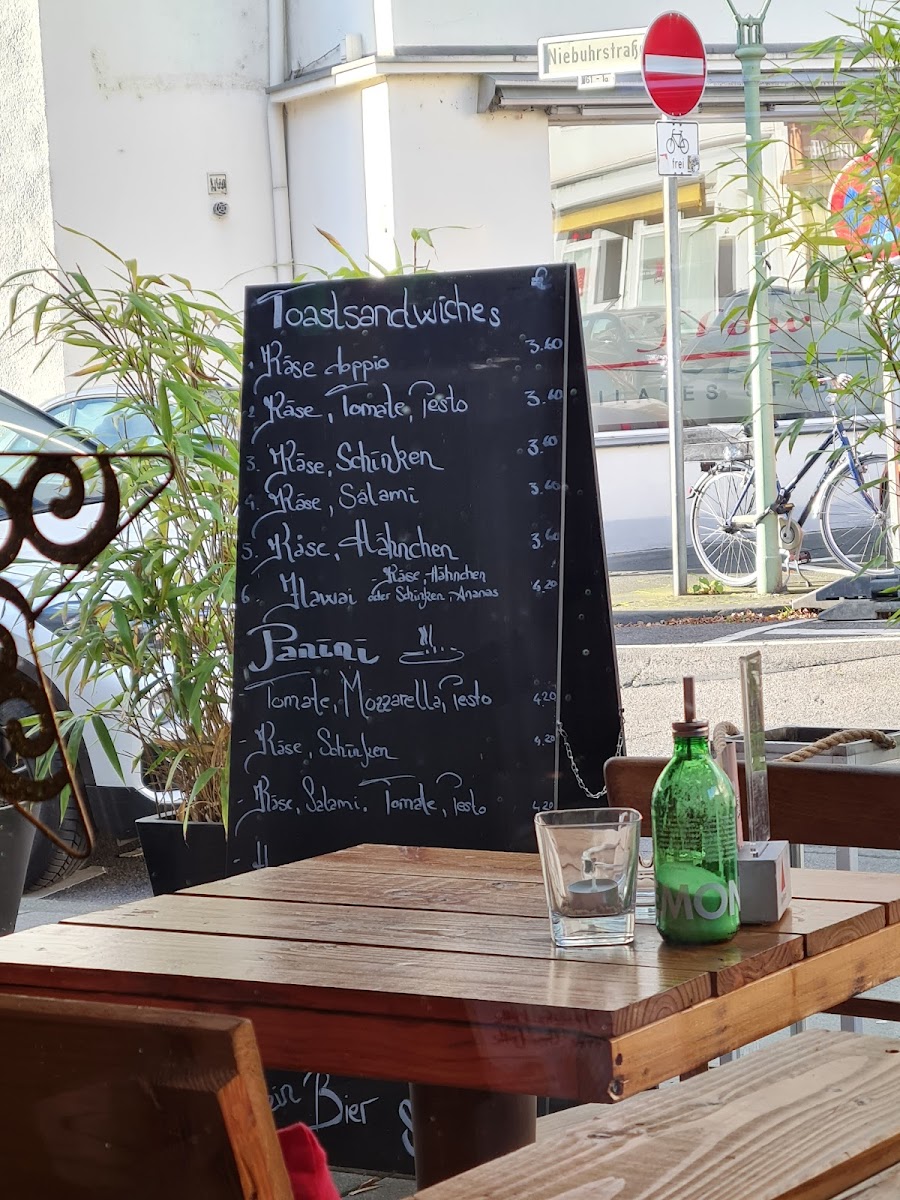 Niebuhrstraße
frei
Toastsandwiches
Käse doppio 3.60
2. Käse, Tomate, Pesto 3.60
3. Käse, Schinken 3.60
4. Käse, Salami 3.60
5. Käse, Hähnchen 3.60
6. Hawai - Käse, Hähnchen 4.20
oder Schinken, Ananas
Panini
Tomate, Mozzarella, Pesto 4.20
- Käse, Schinken 4.20
- Käse, Salami, Tomate, Pesto 4.20
MON
Bier